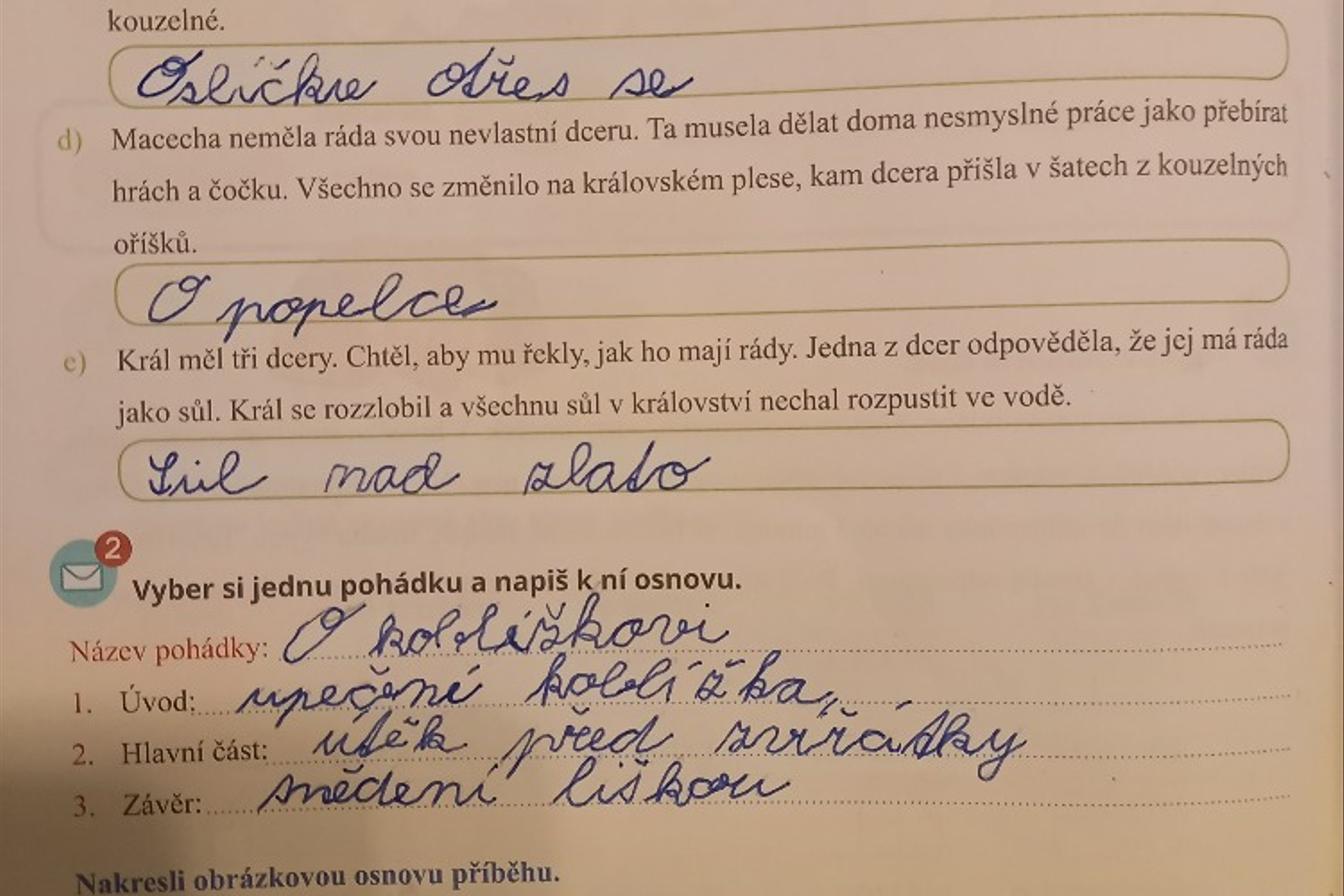 kouzelné.
Oslíčku otřes se
d) Macecha neměla ráda svou nevlastní dceru. Ta musela dělat doma nesmyslné práce jako přebírat
hrách a čočku. Všechno se změnilo na královském plese, kam dcera přišla v šatech z kouzelných
oříšků.
O popelce
e) Král měl tři dcery. Chtěl, aby mu řekly, jak ho mají rády. Jedna z dcer odpověděla, že jej má ráda
jako sůl. Král se rozzlobil a všechnu sůl v království nechal rozpustit ve vodě.
Sůl nad zlato
2
Vyber si jednu pohádku a napiš k ní osnovu.
Název pohádky: O koblížkovi
1. Úvod: upečení koblížka
2. Hlavní část: útěk před zvířátky
3. Závěr: snědení liškou
Nakresli obrázkovou osnovu příběhu.